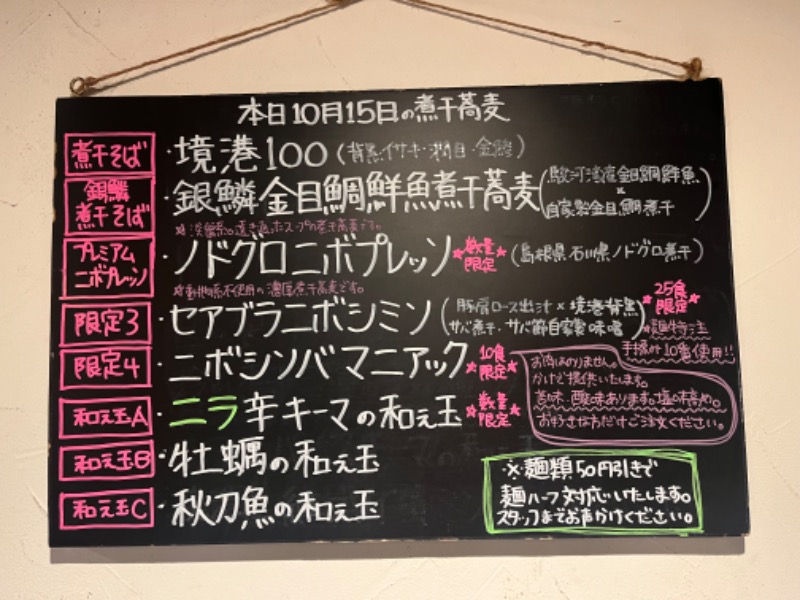 本日10月15日の煮干蕎麦
煮干そば ・境港100（背黒・イサキ・潤目・金鱗）
銀鱗煮干そば ・銀鱗金目鯛鮮魚煮干蕎麦（駿河湾産金目鯛鮮魚×自家製金目鯛煮干）
プレミアムニボプレッソ ・ノドグロニボプレッソ ★数量限定★（島根県 石川県ノドグロ煮干）
※動物系不使用の濃厚煮干蕎麦です。
限定3 ・セアブラニボシミソ（豚肩ロース出汁×境港背黒・サバ煮干・サバ節自家製味噌）★25食限定★
★麺特注
手揉み10番使用!!
限定4 ・ニボシソバマニアック ★10食限定★
お肉はのりません。
かけで提供いたします。
苦味、酸味あります。塩分高め。
お好きな方だけご注文ください。
和え玉A ・ニラ辛キーマの和え玉 ★数量限定★
和え玉B ・牡蠣の和え玉
和え玉C ・秋刀魚の和え玉
・※麺類50円引きで
麺ハーフ対応いたします。
スタッフまでお声かけください。